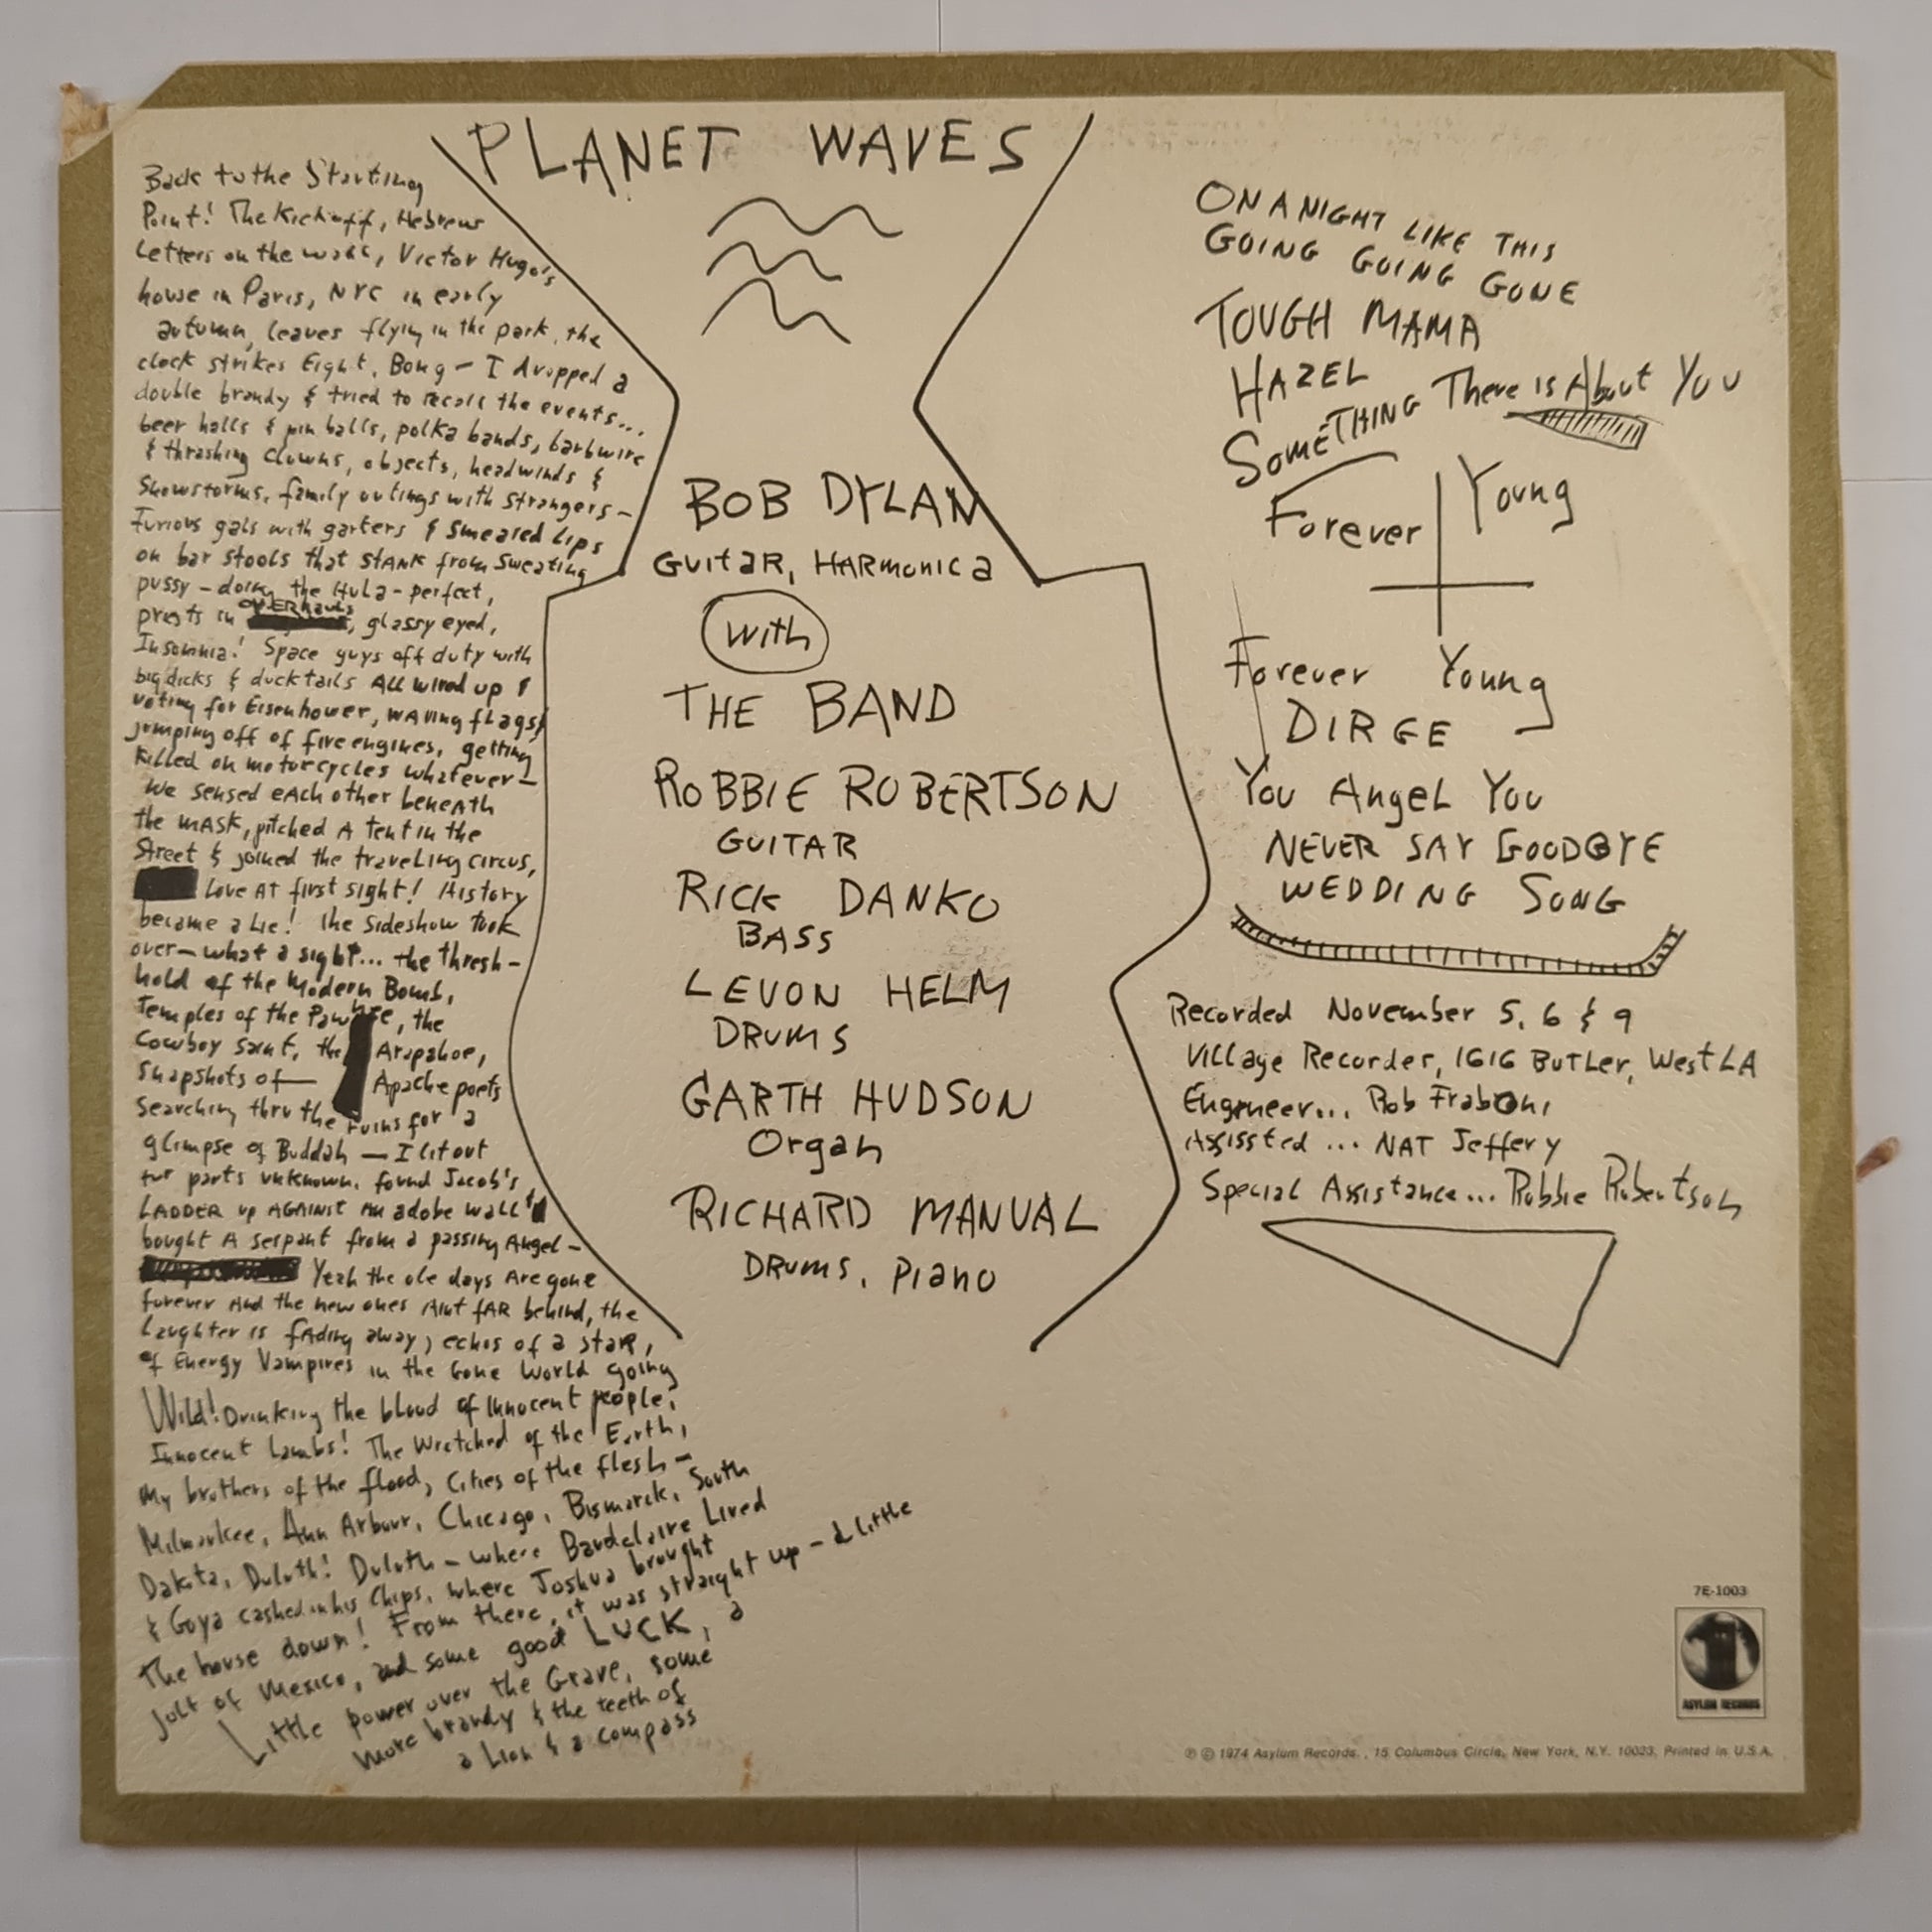 PLANET WAVES
Back to the Starting
Point! The Kickoff, Hebrew
Letters on the wall, Victor Hugo's
house in Paris, NYC in early
autumn, leaves flying in the park, the
clock strikes Eight, Bong — I dropped a
double brandy & tried to recall the events...
beer halls & pin balls, polka bands, barbwire
& thrashing clowns, objects, headwinds &
Snowstorms, family outings with strangers —
Furious gals with garters & smeared Lips
on bar stools that STANK from sweating
pussy — doing the Hula - perfect,
prests in OVERHauls, glassy eyed,
Insomnia! Space guys off duty with
big dicks & ducktails ALL wired up &
voting for Eisenhower, waving flags &
jumping off of fire engines, getting
killed on motorcycles whatever —
We sensed each other beneath
the MASK, pitched A tent in the
Street & joined the traveling circus,
Love AT first sight! History
became a Lie! the sideshow took
over — what a sight... the thresh-
hold of the Modern Bomb,
Temples of the Pawnee, the
Cowboy saint, the Arapahoe,
snapshots of — Apache poets
searching thru the ruins for a
glimpse of Buddah — I lit out
for parts unknown, found Jacob's
LADDER up AGAINST An adobe wall &
bought A serpant from a passing Angel —
Yeah the ole days Are gone
forever And the new ones Aint fAR behind, the
Laughter is fading away, echos of a staR,
of Energy Vampires in the Gone World going
Wild! Drinking the blood of innocent people,
Innocent Lambs! The Wretched of the Earth,
My brothers of the flood, Cities of the flesh —
Milwaukee, Ann Arbour, Chicago, Bismarck, South
Dakota, Duluth! Duluth — where Baudelaire Lived
& Goya cashed in his Chips, where Joshua brought
the house down! From there, it was straight up — a little
jolt of Mexico, and some good LUCK, a
Little power over the Grave, some
more brandy & the teeth of
a Lion & a compass
BOB DYLAN
GUITAR, HARMONICA
with
THE BAND
ROBBIE ROBERTSON
GUITAR
RICK DANKO
BASS
LEVON HELM
DRUMS
GARTH HUDSON
Organ
RICHARD MANUAL
DRUMS, PIANO
ON A NIGHT LIKE THIS
GOING GOING GONE
TOUGH MAMA
HAZEL
SOMETHING There is About You
Forever Young
Forever Young
DIRGE
You Angel You
NEVER SAY GOODBYE
WEDDING SONG
Recorded November 5, 6 & 9
Village Recorder, 1616 BUTLER, West LA
Engineer... Rob Fraboni
Assissted ... NAT Jeffery
Special Assistance... Robbie Robertson
7E-1003
ASYLUM RECORDS
℗ © 1974 Asylum Records., 15 Columbus Circle, New York, N.Y. 10023, Printed in U.S.A.